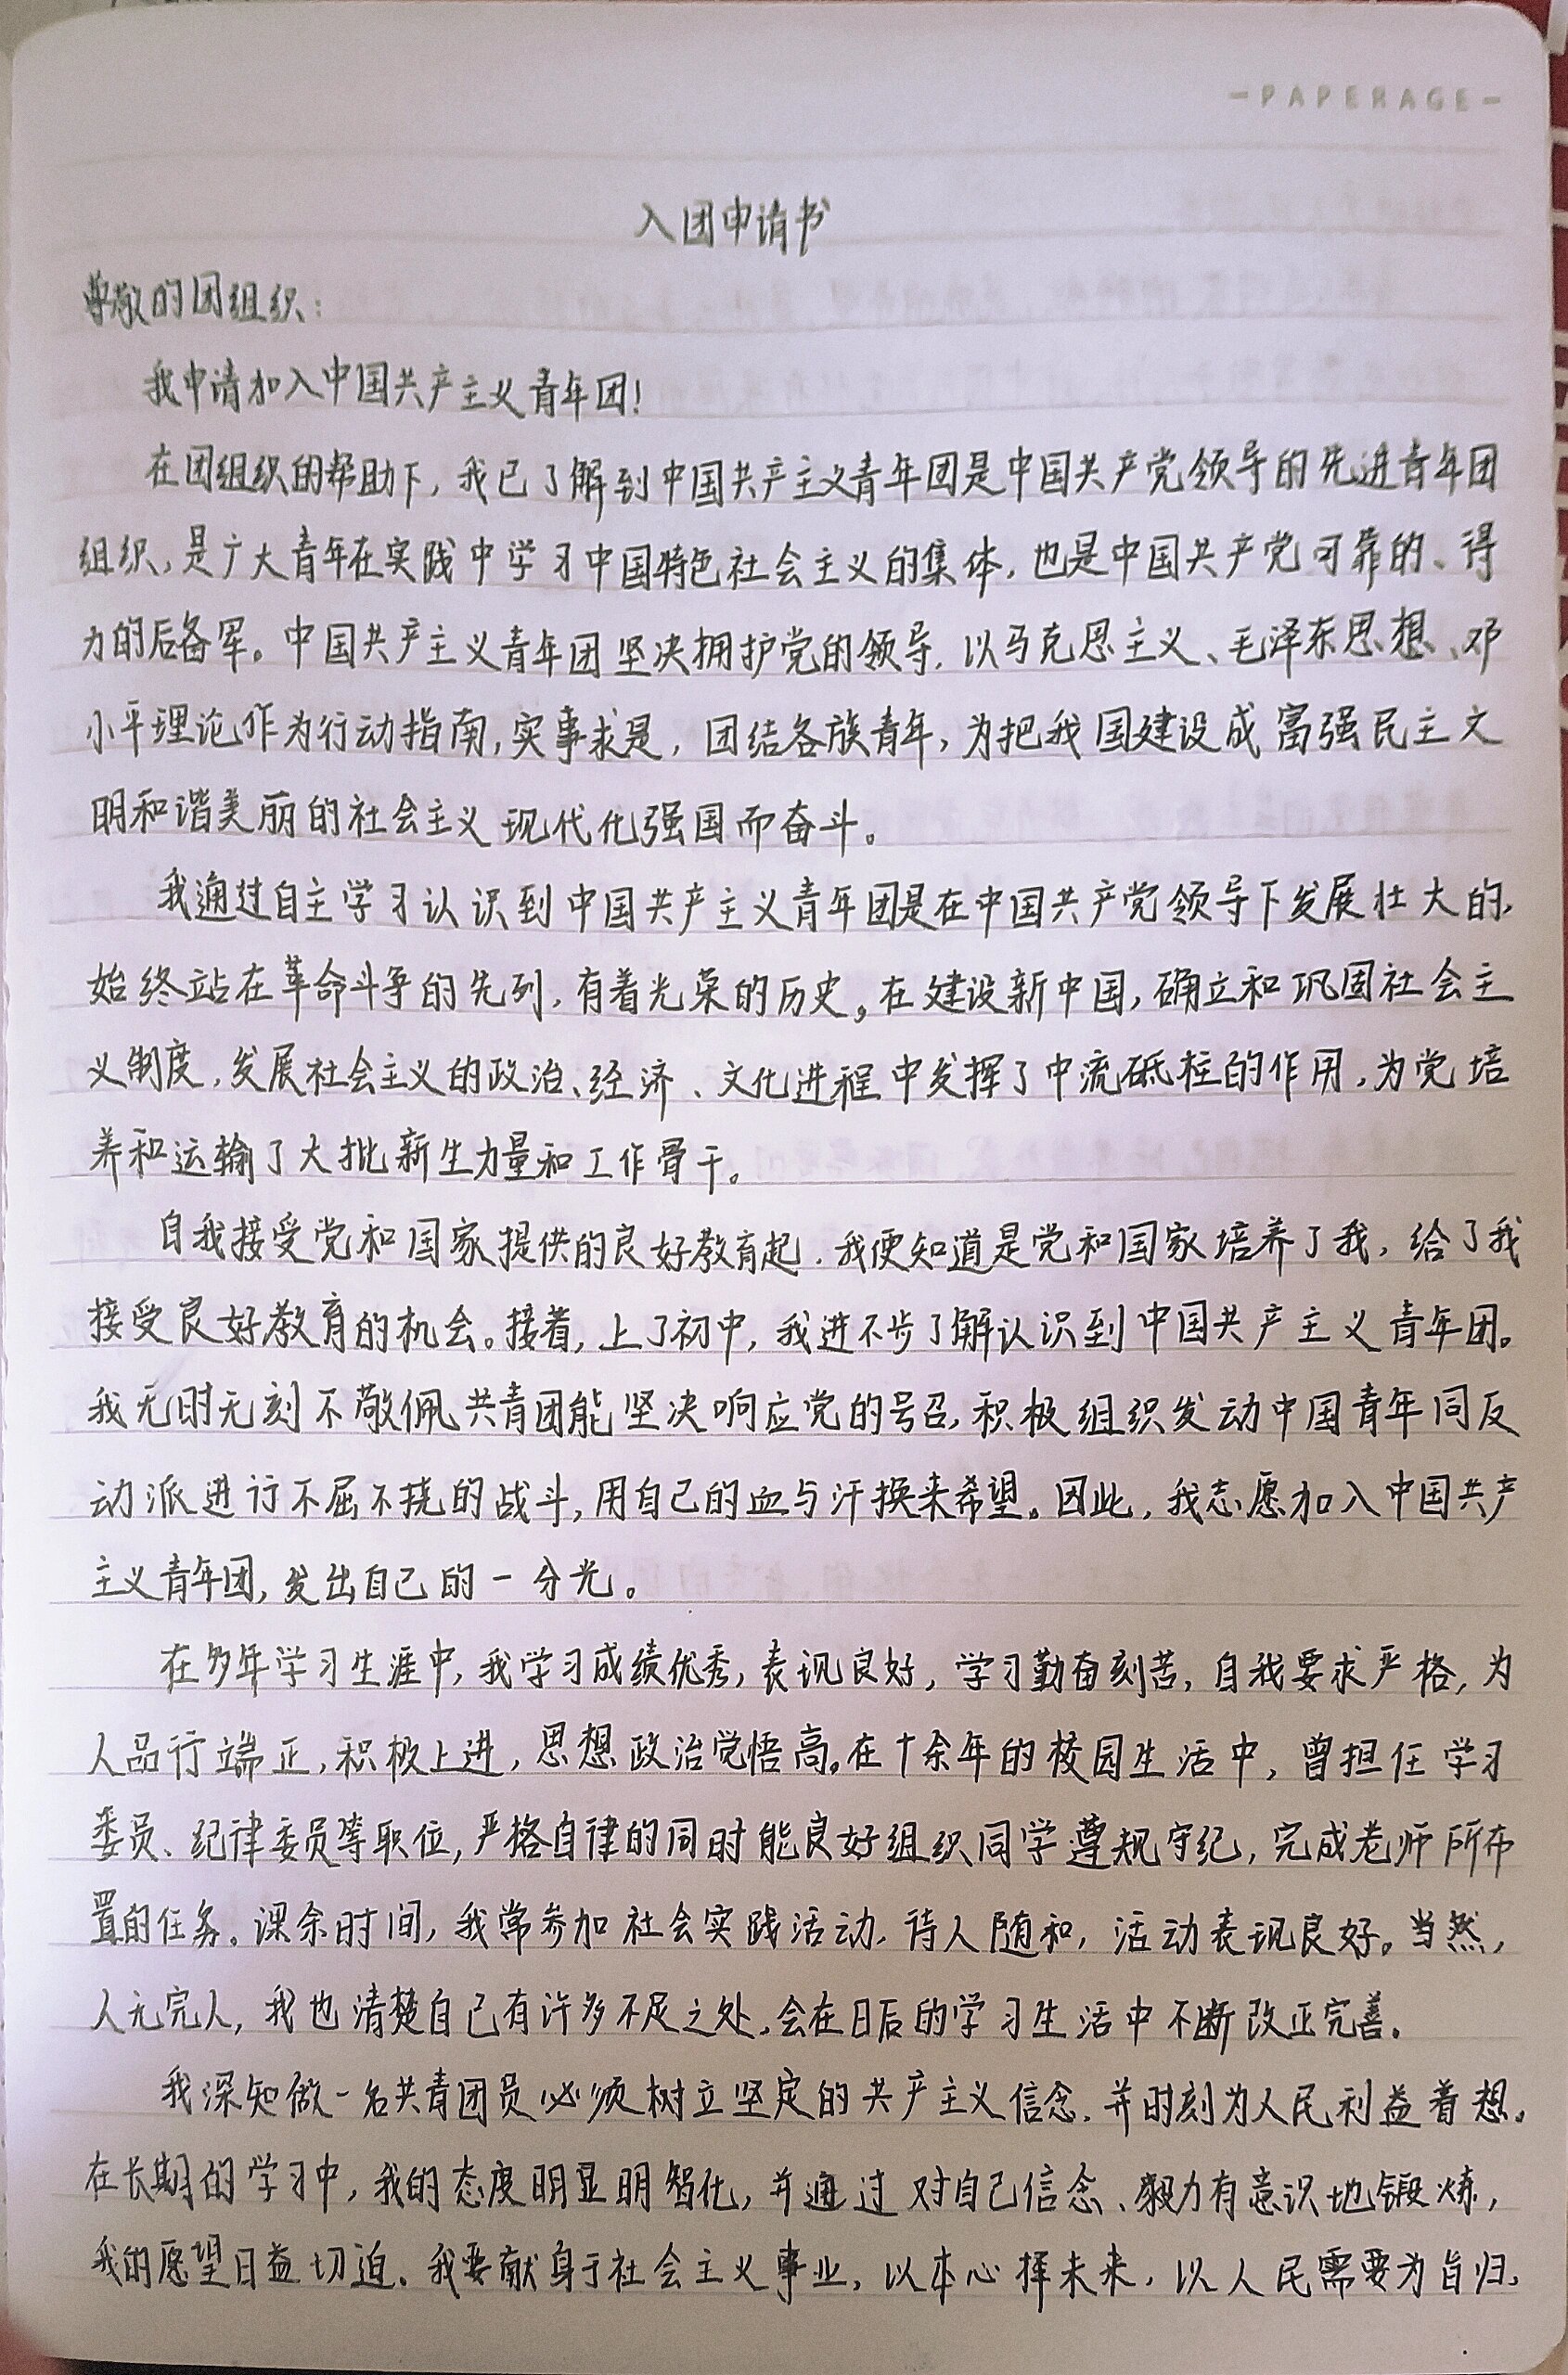 -PAPERAGE-
入团申请书
尊敬的团组织:
我申请加入中国共产主义青年团!
在团组织的帮助下,我已了解到中国共产主义青年团是中国共产党领导的先进青年团
组织,是广大青年在实践中学习中国特色社会主义的集体,也是中国共产党可靠的、得
力的后备军。中国共产主义青年团坚决拥护党的领导,以马克思主义、毛泽东思想、邓
小平理论作为行动指南,实事求是,团结各族青年,为把我国建设成富强民主文
明和谐美丽的社会主义现代化强国而奋斗。
我通过自主学习认识到中国共产主义青年团是在中国共产党领导下发展壮大的,
始终站在革命斗争的先列,有着光荣的历史。在建设新中国,确立和巩固社会主
义制度,发展社会主义的政治、经济、文化进程中发挥了中流砥柱的作用,为党培
养和运输了大批新生力量和工作骨干。
自我接受党和国家提供的良好教育起,我便知道是党和国家培养了我,给了我
接受良好教育的机会。接着,上了初中,我进不步了解认识到中国共产主义青年团。
我无时无刻不敬佩共青团能坚决响应党的号召,积极组织发动中国青年同反
动派进行不屈不挠的战斗,用自己的血与汗换来希望。因此,我志愿加入中国共产
主义青年团,发出自己的一分光。
在多年学习生涯中,我学习成绩优秀,表现良好,学习勤奋刻苦,自我要求严格,为
人品行端正,积极上进,思想政治觉悟高。在十余年的校园生活中,曾担任学习
委员、纪律委员等职位,严格自律的同时能良好组织同学遵规守纪,完成老师所布
置的任务。课余时间,我常参加社会实践活动,待人随和,活动表现良好。当然,
人无完人,我也清楚自己有许多不足之处,会在日后的学习生活中不断改正完善。
我深知做一名共青团员必须树立坚定的共产主义信念,并时刻为人民利益着想。
在长期的学习中,我的态度明显明智化,并通过对自己信念、毅力有意识地锻炼,
我的愿望日益切迫。我要献身于社会主义事业,以本心择未来,以人民需要为旨归,